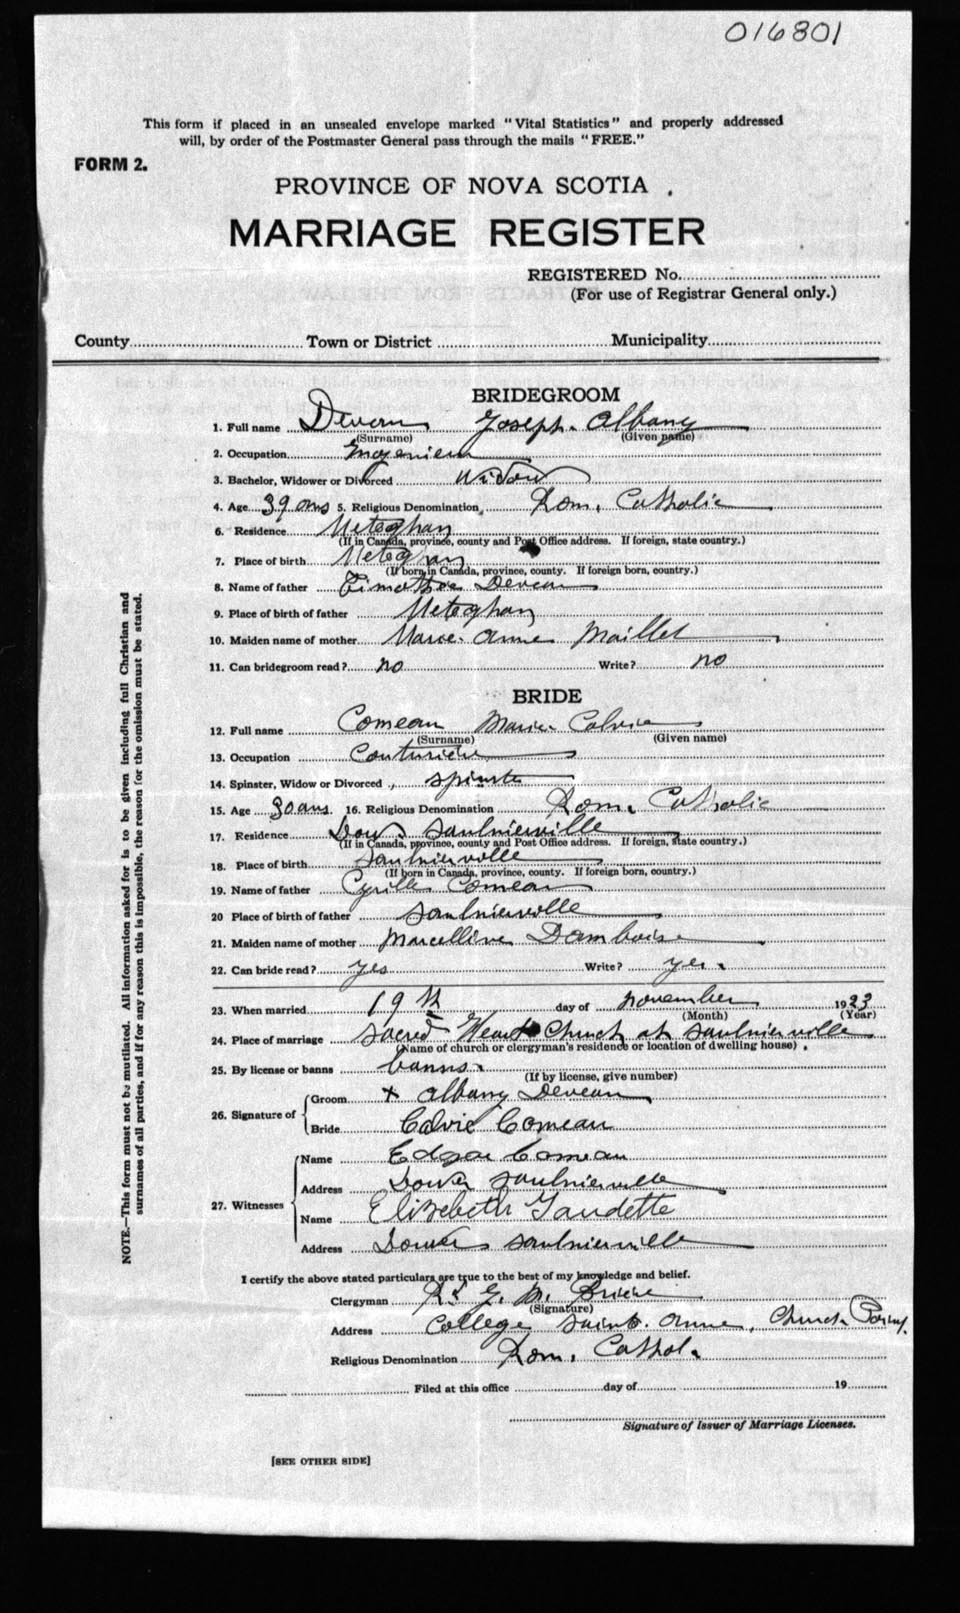 016801
This form if placed in an unsealed envelope marked "Vital Statistics" and properly addressed
will, by order of the Postmaster General pass through the mails "FREE."
FORM 2.
PROVINCE OF NOVA SCOTIA
MARRIAGE REGISTER
REGISTERED No.
(For use of Registrar General only.)
County Town or District Municipality
BRIDEGROOM
1. Full name Deveau Joseph Albany
(Surname) (Given name)
2. Occupation
3. Bachelor, Widower or Divorced widow
4. Age 39 ans 5. Religious Denomination Rom. Catholic
6. Residence Meteghan
(If in Canada, province, county and Post Office address. If foreign, state country.)
7. Place of birth Meteghan
(If born in Canada, province, county. If foreign born, country.)
8. Name of father Deveau
9. Place of birth of father Meteghan
10. Maiden name of mother Marie Anne Maillet
11. Can bridegroom read? no Write? no
BRIDE
12. Full name Comeau Marie
(Surname) (Given name)
13. Occupation
14. Spinster, Widow or Divorced
15. Age 30 ans. 16. Religious Denomination Rom. Catholic
17. Residence Saulnierville
(If in Canada, province, county and Post Office address. If foreign, state country.)
18. Place of birth Saulnierville
(If born in Canada, province, county. If foreign born, country.)
19. Name of father Cyrille Comeau
20 Place of birth of father Saulnierville
21. Maiden name of mother Marcelline
22. Can bride read? yes Write? yes.
23. When married 19th day of November 1923
(Month) (Year)
24. Place of marriage Sacred Heart Church at Saulnierville
(Name of church or clergyman's residence or location of dwelling house)
25. By license or banns banns.
(If by license, give number)
26. Signature of Groom x Albany Deveau
Bride Calvie Comeau
27. Witnesses Name Edgar Comeau
Address Saulnierville
Name Elizebeth Gaudette
Address Saulnierville
I certify the above stated particulars are true to the best of my knowledge and belief.
Clergyman
(Signature)
Address College Saint. Anne, Church
Religious Denomination Rom. Cathol.
Filed at this office day of 19
Signature of Issuer of Marriage Licenses.
[SEE OTHER SIDE]
NOTE.—This form must not be mutilated. All information asked for is to be given including full Christian and
surnames of all parties, and if for any reason this is impossible, the reason for the omission must be stated.